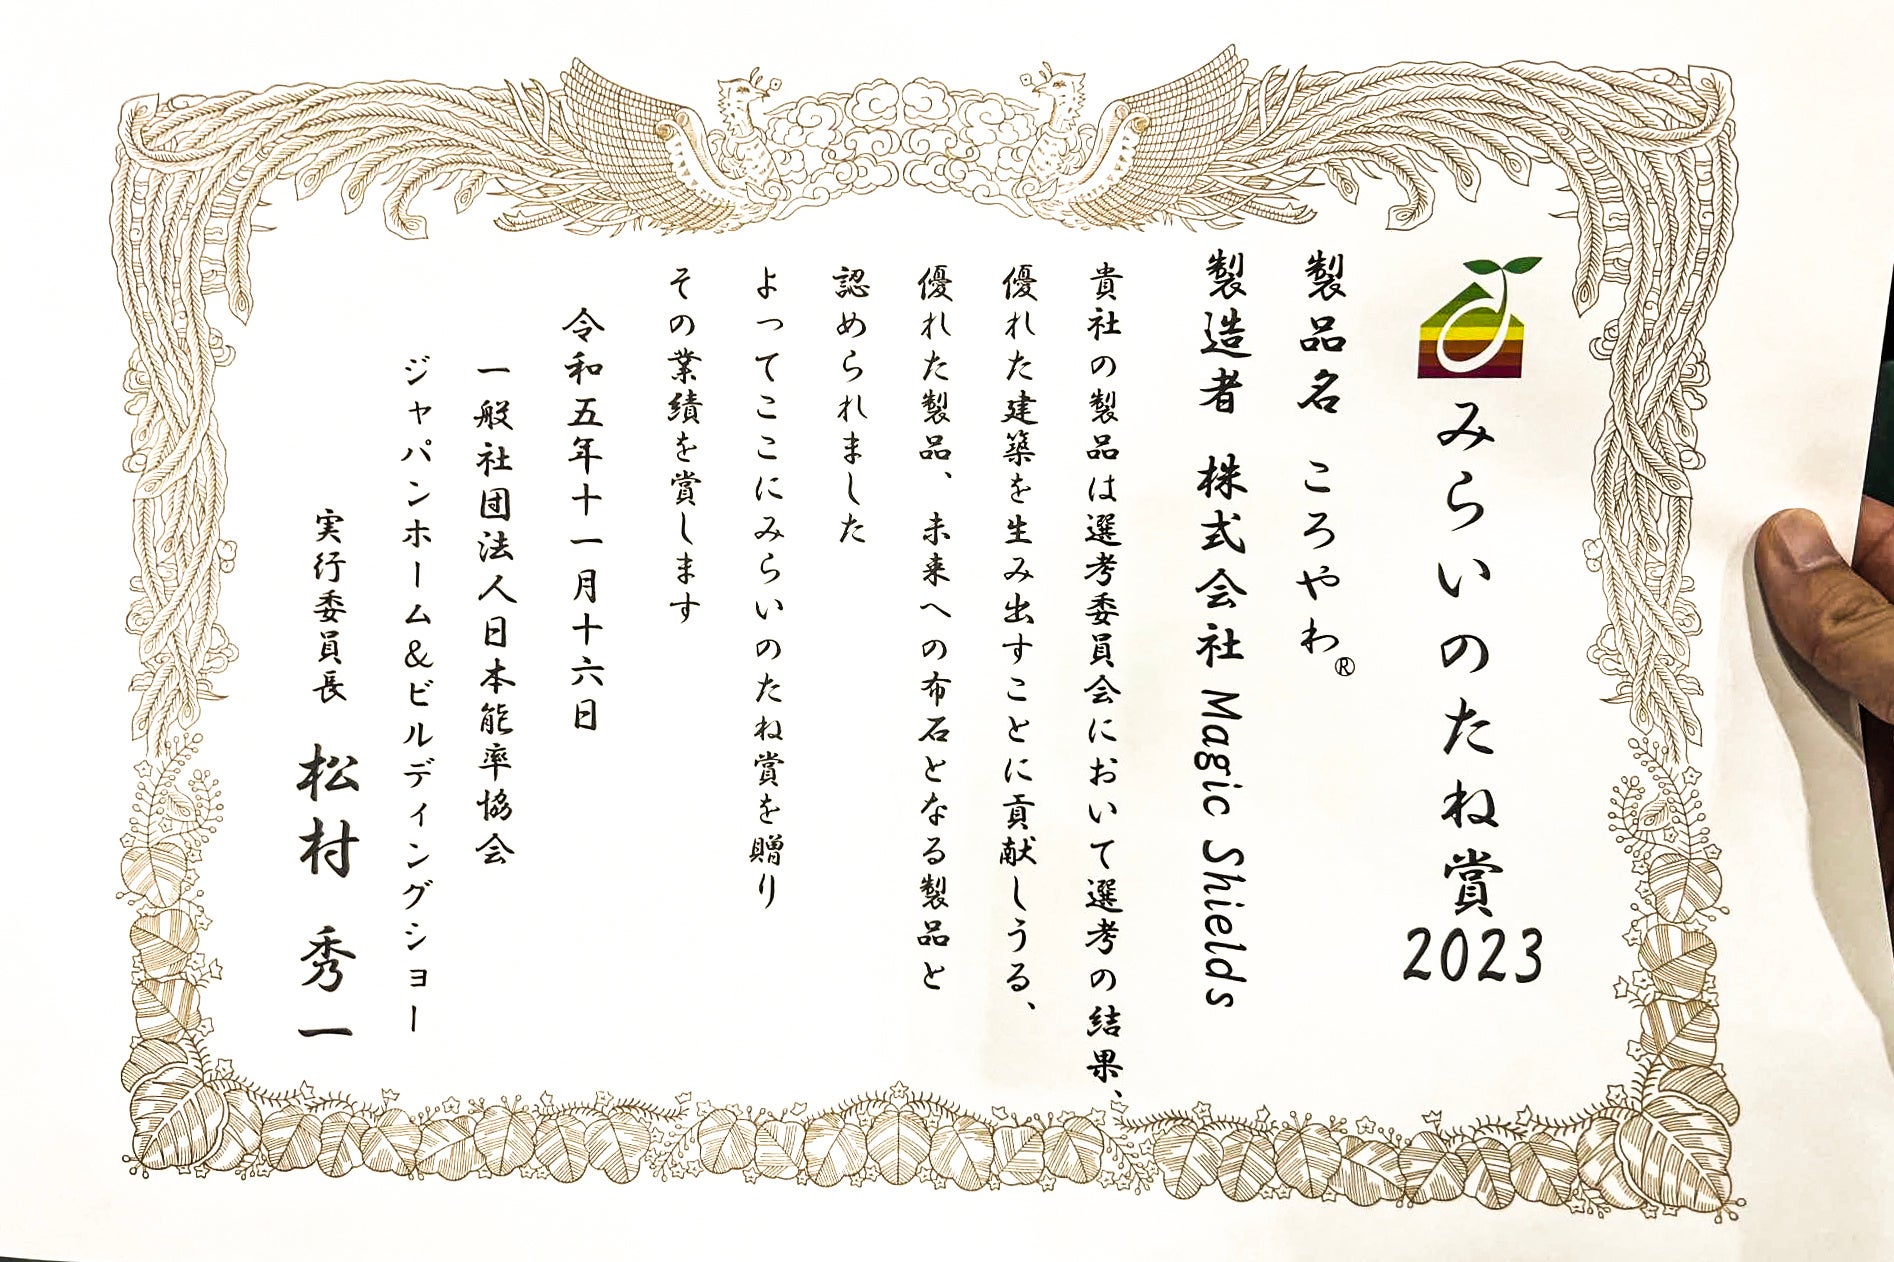 みらいのたね賞
2023
製品名 ころやわ®
製造者 株式会社 Magic Shields
貴社の製品は選考委員会において選考の結果、
優れた建築を生み出すことに貢献しうる、
優れた製品、未来への布石となる製品と
認められました
よってここにみらいのたね賞を贈り
その業績を賞します
令和五年十一月十六日
一般社団法人日本能率協会
ジャパンホーム&ビルディングショー
実行委員長 松村 秀一